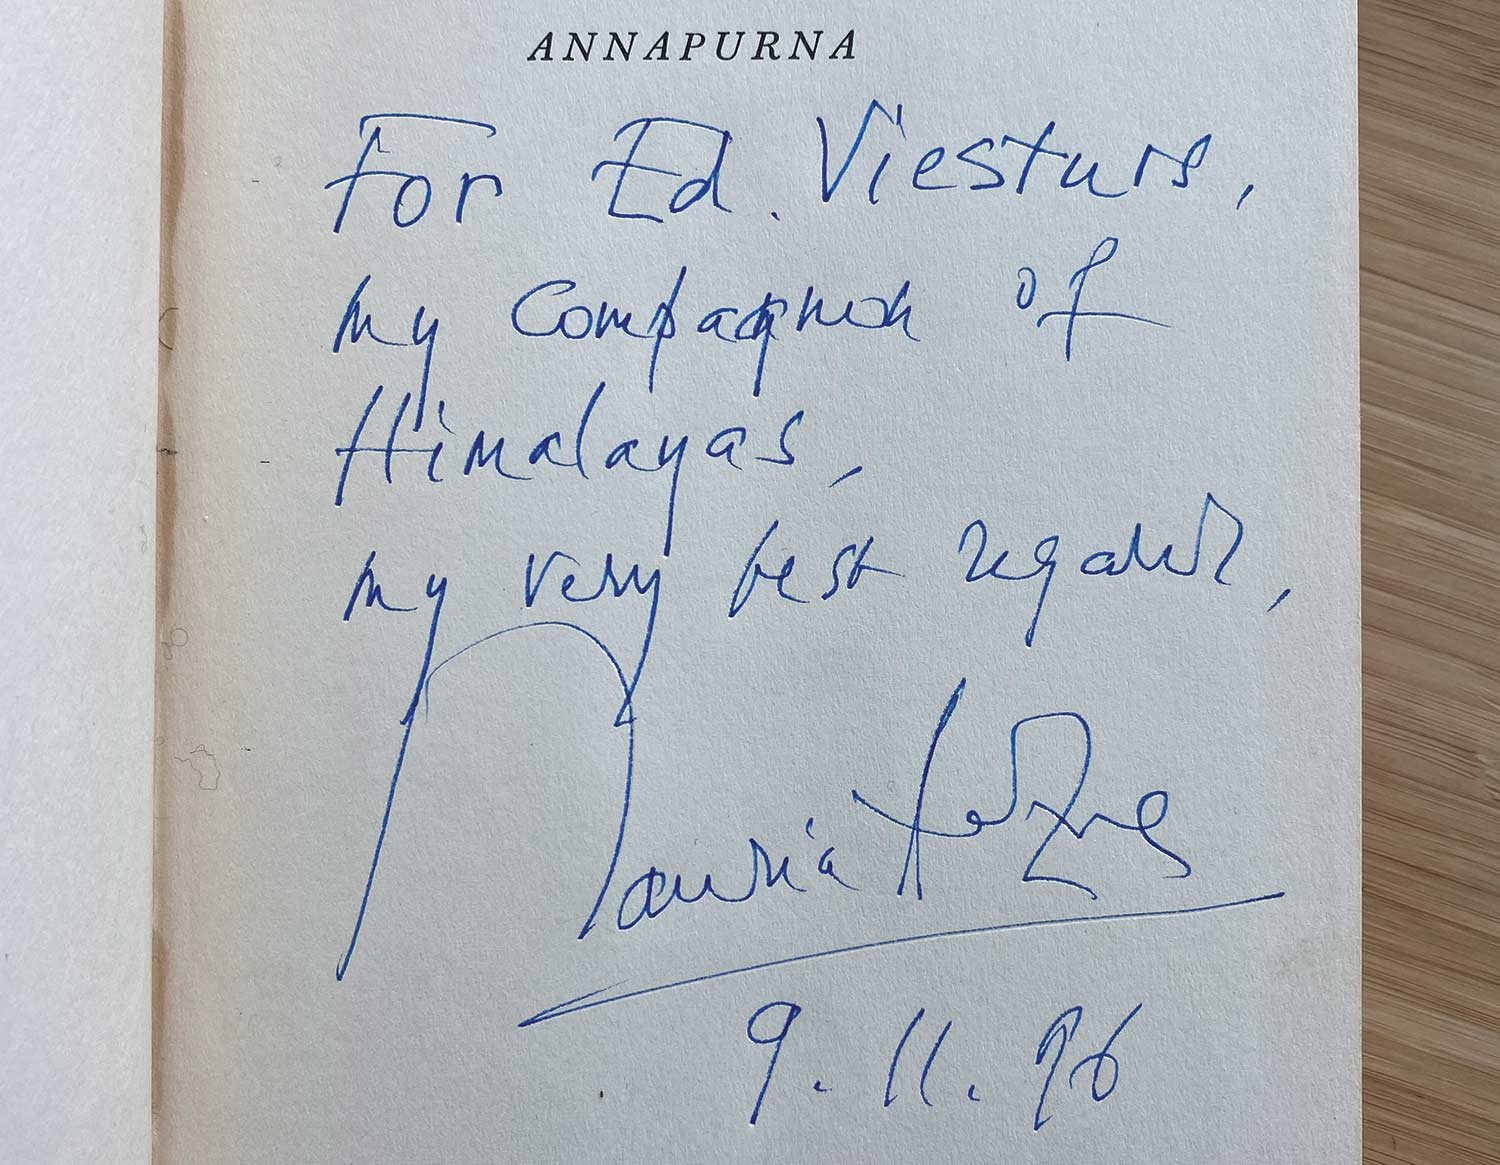 ANNAPURNA
For Ed. Viesturs,
my Compagnon of
Himalayas,
my very best regards,
Maurice Herzog
9.11.96